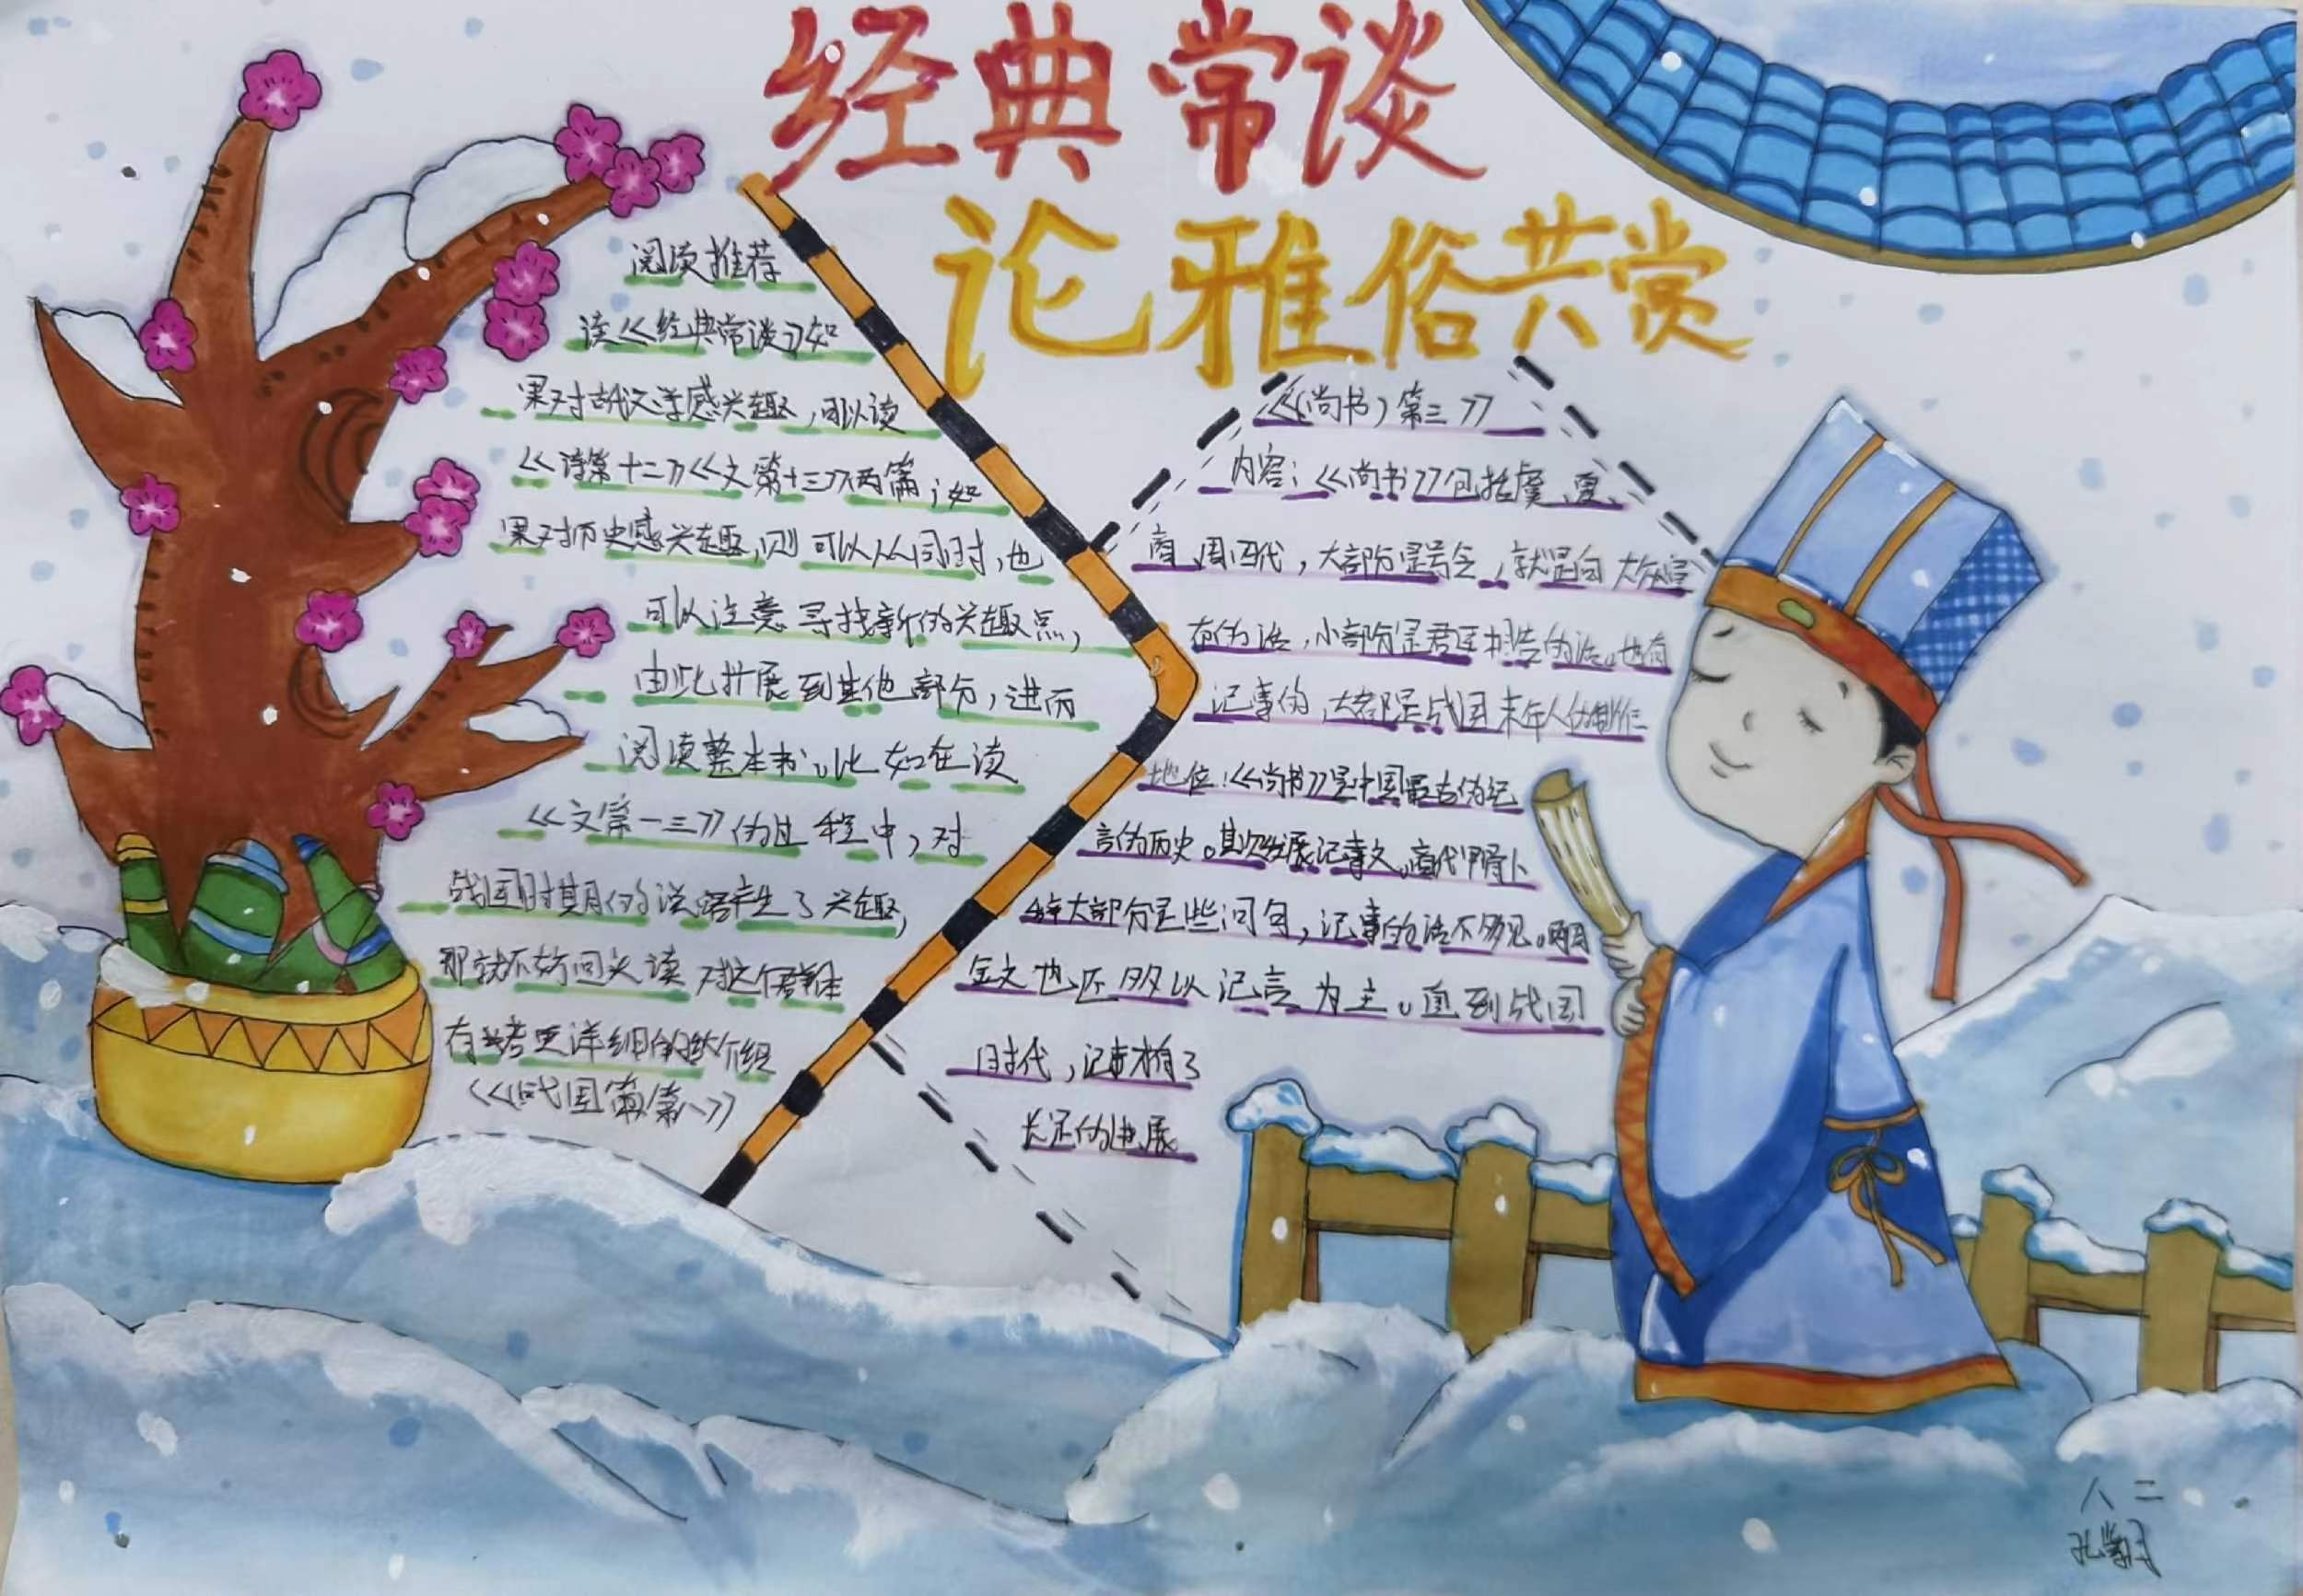 经典常谈
论雅俗共赏
阅读推荐
读《经典常谈》如
果对古代文学感兴趣，可以读
《诗第十二》《文第十三》两篇；如
果对历史感兴趣，则可以从同时，也
可以注意寻找新的兴趣点，
由此扩展到其他部分，进而
阅读整本书。比如在读
《文第一三》的过程中，对
战国时期的说客产生了兴趣，
那就不妨回头读 对这个群体
有着更详细的介绍
《战国策第八》
《(尚书)第三》
内容：《尚书》包括虞、夏、
商、周四代，大部分是号令，就是向大众宣
布的话，小部分是君臣相告的话。也有
记事的，大都是战国末年人的制作
地位：《尚书》是中国最古的记
言的历史。其次发展记事文。商代甲骨卜
辞大部分是些问句，记事的话不多见。两周
金文也还多以记言为主。直到战国
时代，记事才有了
长足的进展
八二